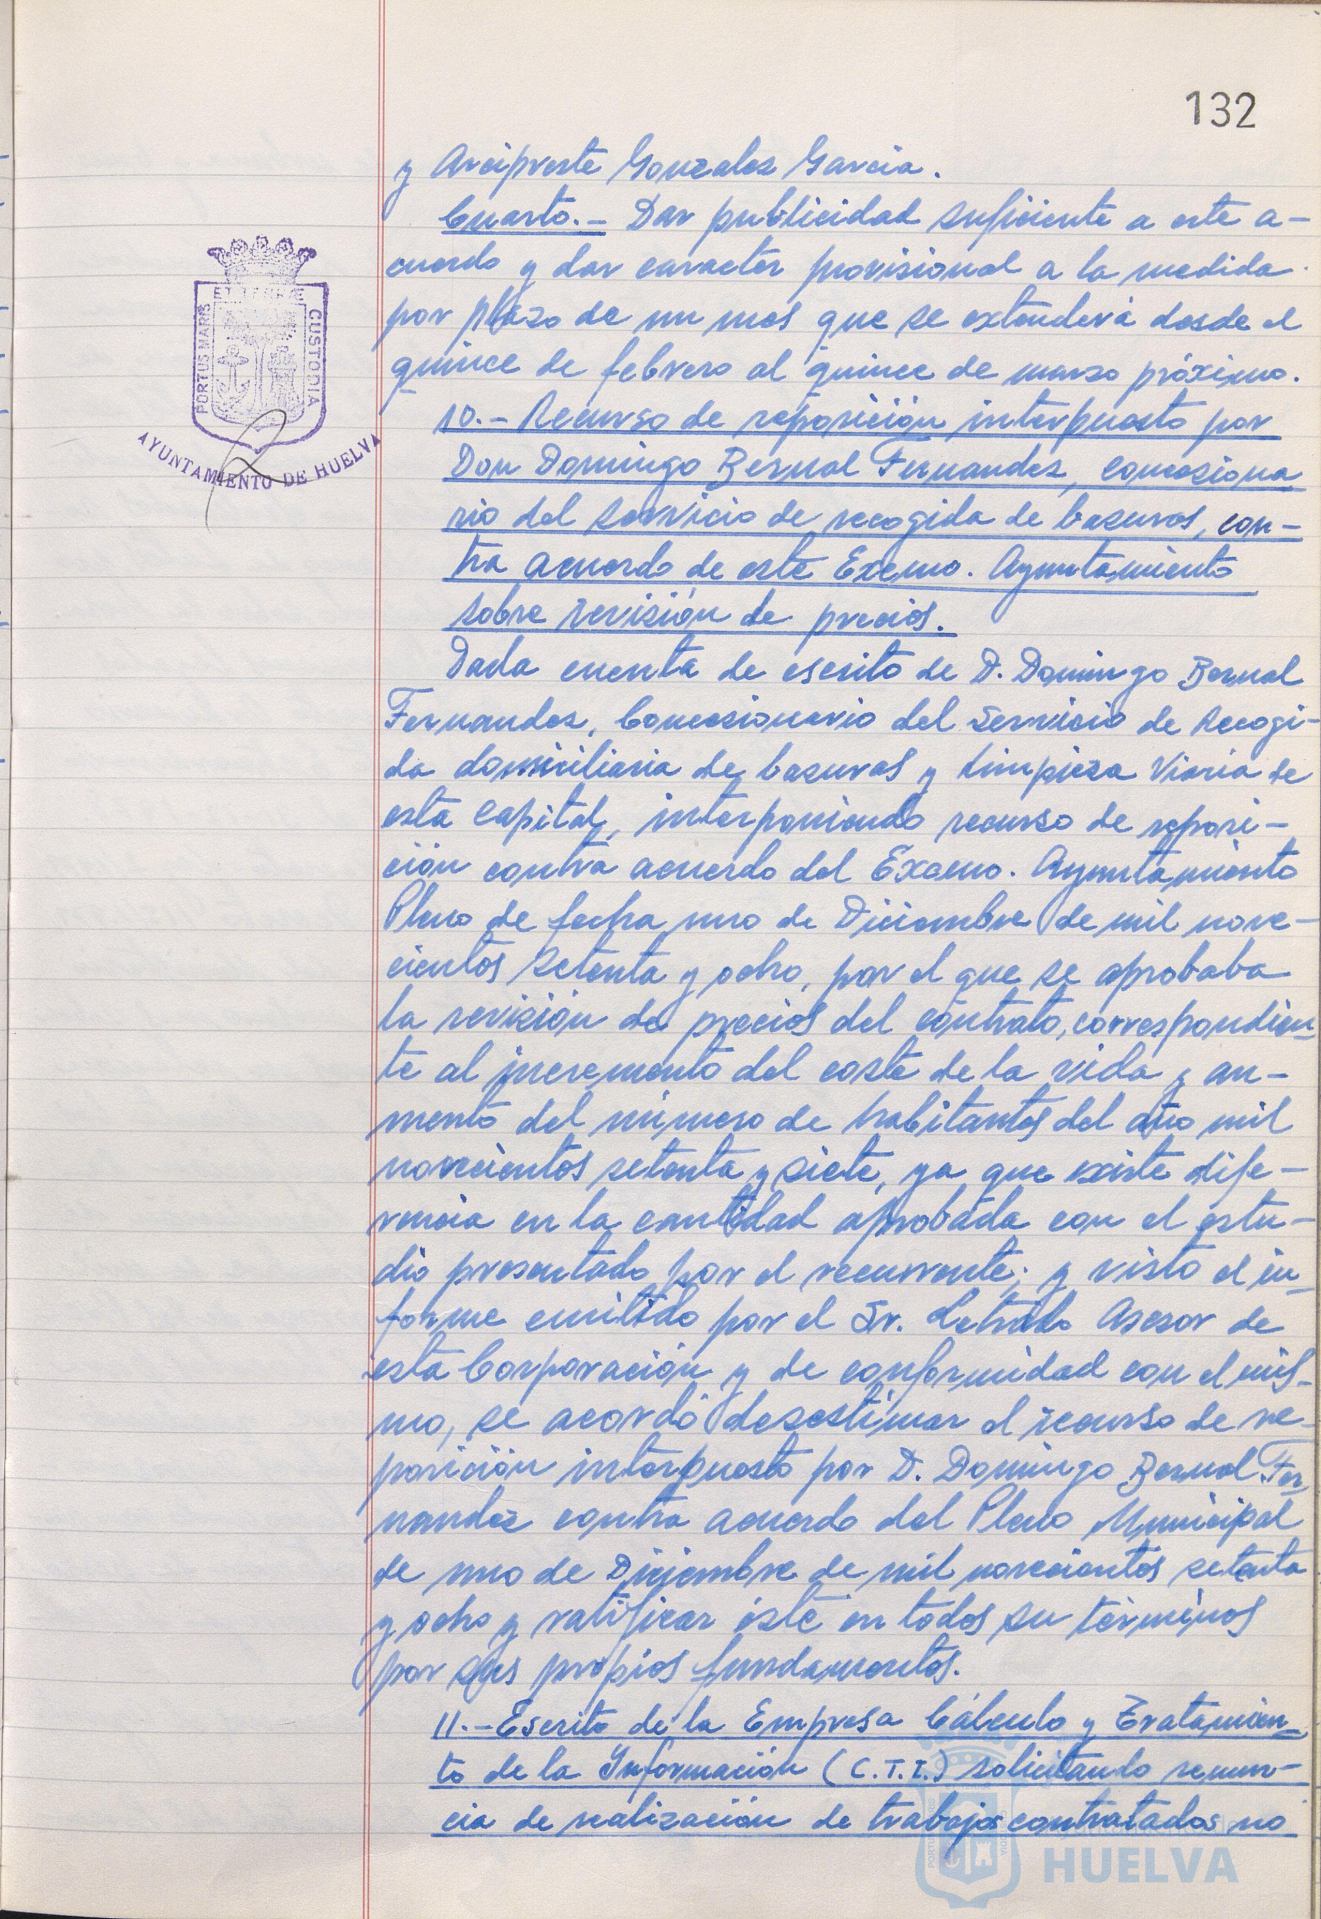 132
y Arcipreste Gonzalez Garcia.
Cuarto.- Dar publicidad suficiente a este a-
cuerdo y dar caracter provisional a la medida
por plazo de un mes que se extenderá desde el
quince de febrero al quince de marzo próximo.
10.- Recurso de reposición interpuesto por
Don Domingo Bernal Fernandez, concesiona
rio del servicio de recogida de basuras, con-
tra acuerdo de este Excmo. Ayuntamiento
sobre revisión de precios.
Dada cuenta de escrito de D. Domingo Bernal
Fernandez, Concesionario del Servicio de Recogi-
da domiciliaria de basuras y Limpieza Viaria de
esta Capital, interponiendo recurso de reposi-
ción contra acuerdo del Excmo. Ayuntamiento
Pleno de fecha uno de Diciembre de mil nove-
cientos setenta y ocho, por el que se aprobaba
la revisión de precios del contrato, correspondien
te al incremento del coste de la vida y au-
mento del número de habitantes del año mil
novecientos setenta y siete, ya que existe dife-
rencia en la cantidad aprobada con el estu-
dio presentado por el recurrente; y visto el in-
forme emitido por el Sr. Letrado Asesor de
esta Corporación y de conformidad con el mis-
mo, se acordó desestimar el recurso de re-
posición interpuesto por D. Domingo Bernal Fer-
nandez contra acuerdo del Pleno Municipal
de uno de Diciembre de mil novecientos setenta
y ocho y ratificar éste en todos su términos
por sus propios fundamentos.
11.- Escrito de la Empresa Cálculo y Tratamien-
to de la Información (C.T.I.) solicitando renun-
cia de realización de trabajos contratados no
PORTUS MARIS
ET TERRE
CUSTODIA
AYUNTAMIENTO DE HUELVA
HUELVA